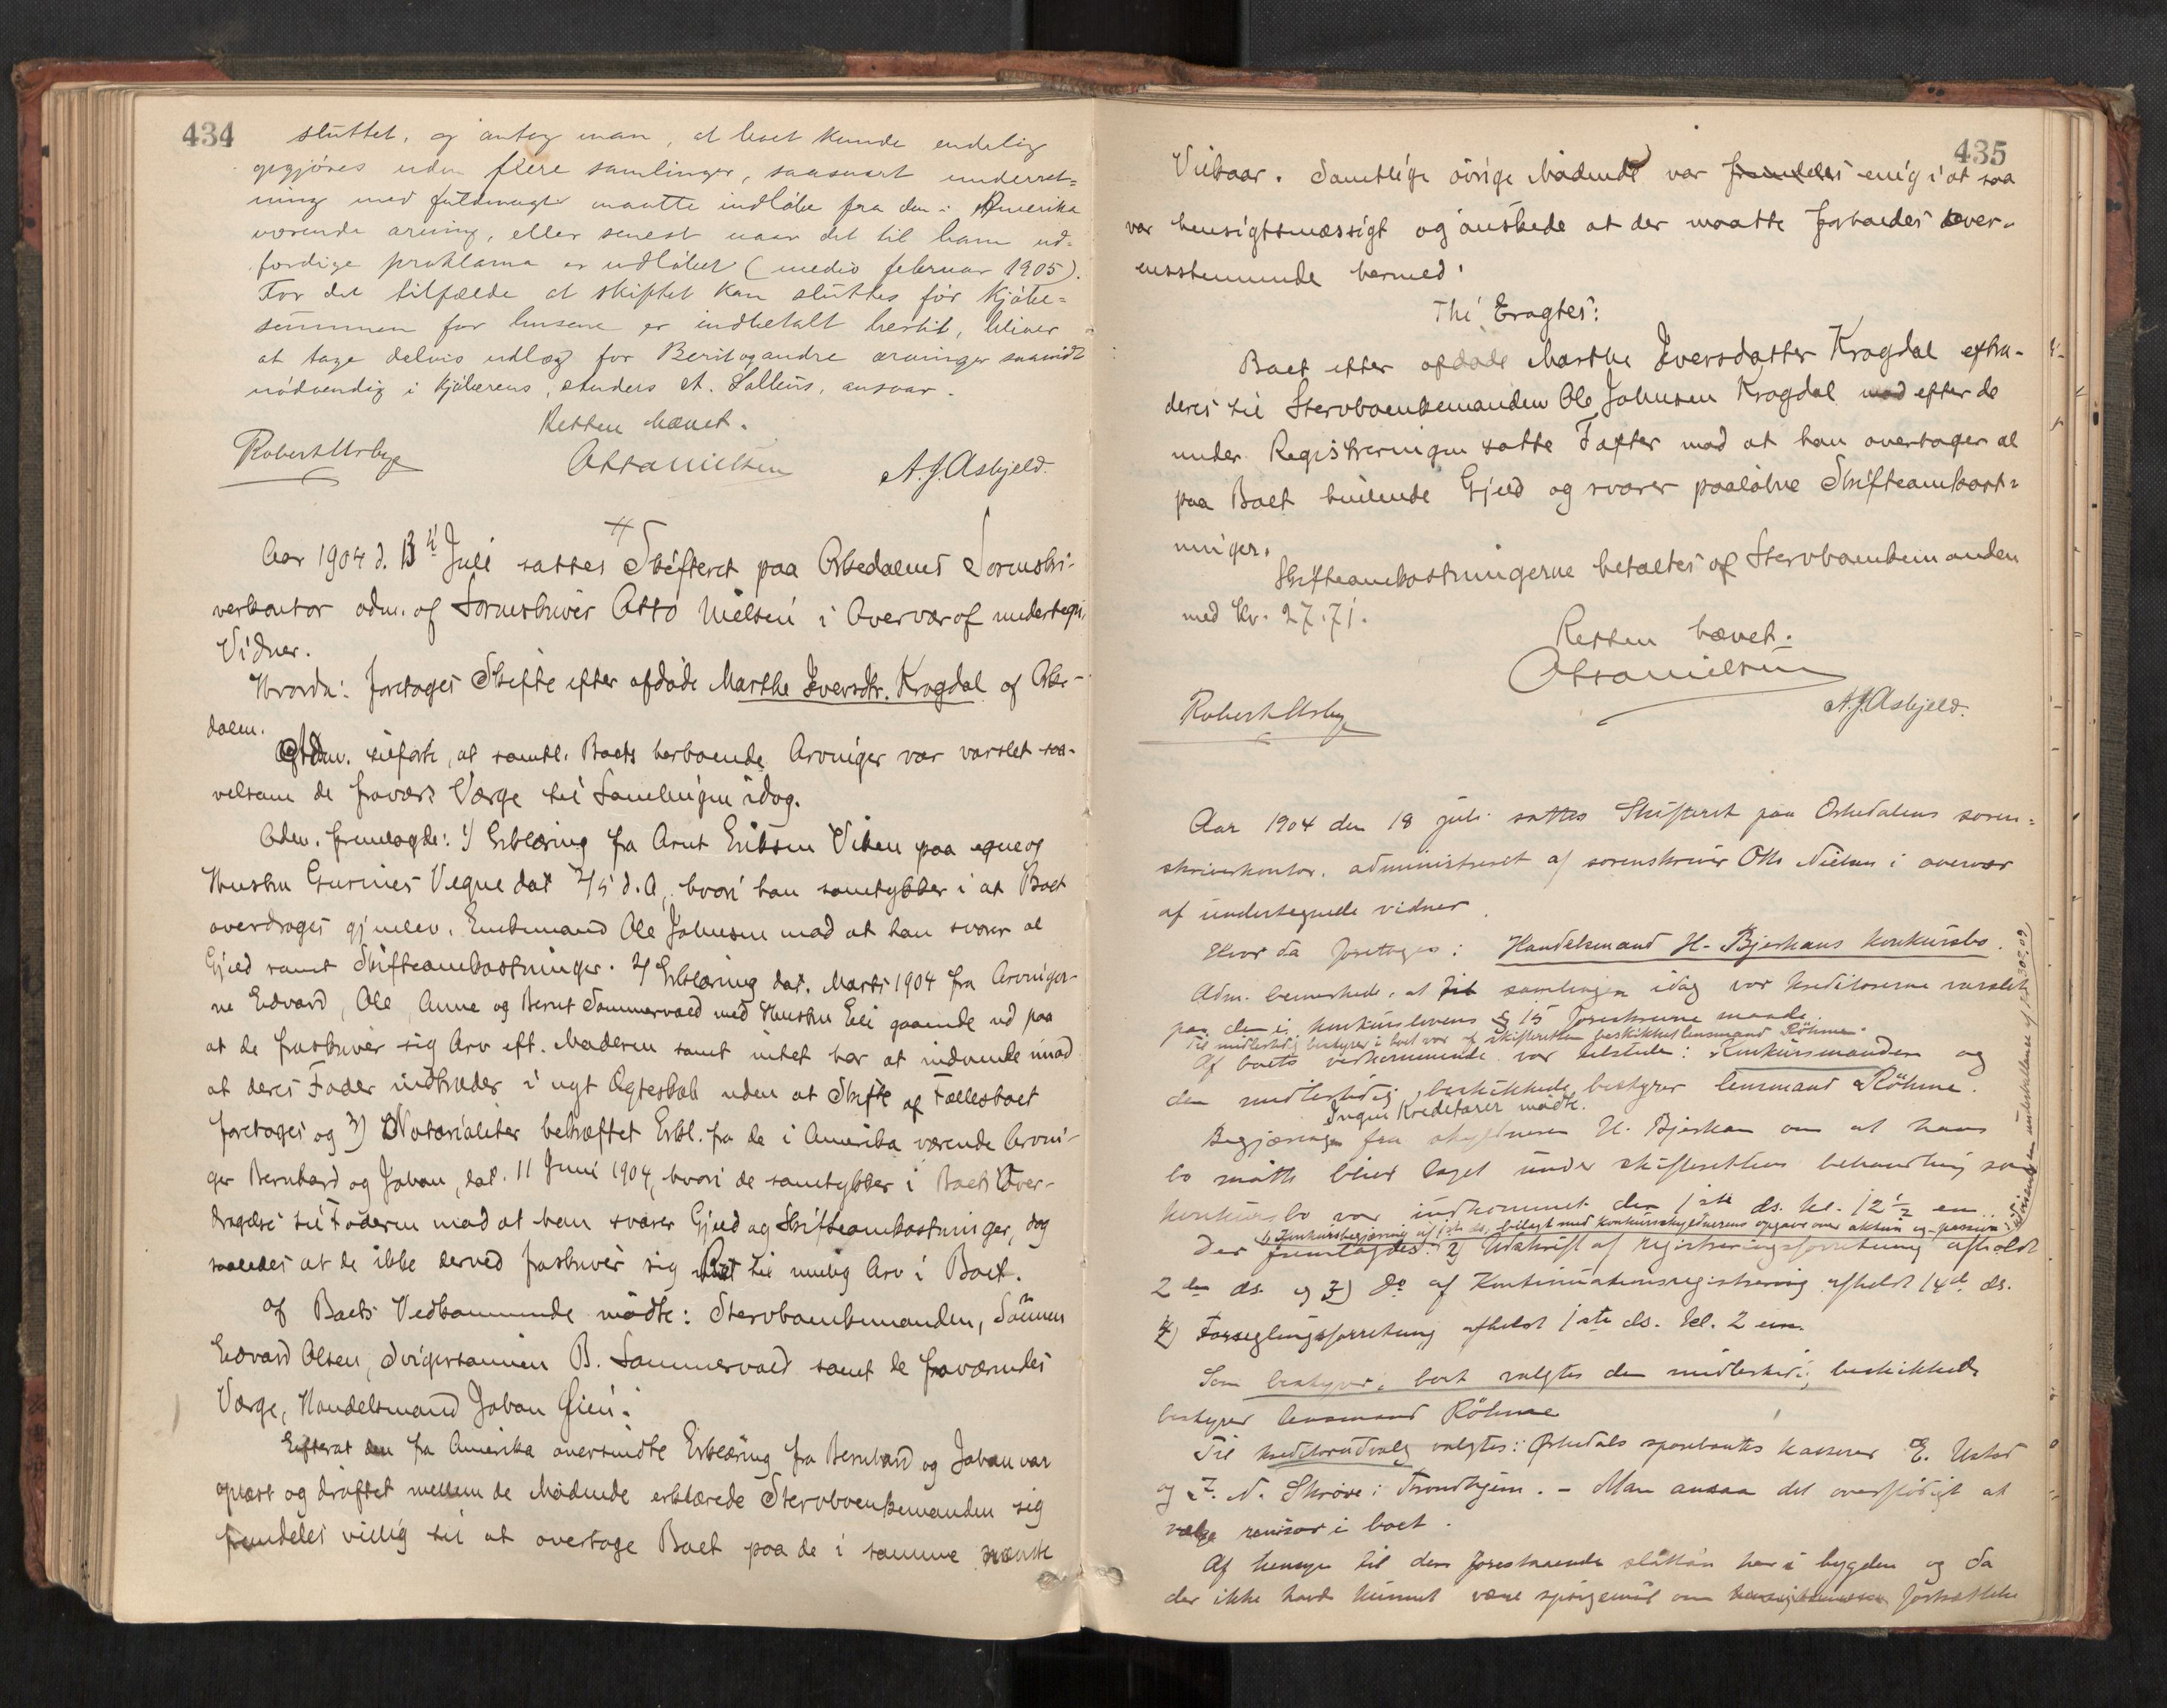 434
sluttet, og antog man, at boet kunde endelig
opgjöres uden flere samlinger, saasnart underret-
ning med fuldmagt maatte indlöbe fra den i Amerika
værende arving, eller senest naar det til ham ud-
færdige proklama er udlöbet (medio februar 1905).
For det tilfælde at skiftet kan sluttes för kjöbe-
summen for husene er indbetalt hertil, bliver
at tage delvis udlæg for Berit og andre arvinger saavidt
nödvendig i kjöberens, Anders A. Solliens, ansvar.
Retten hævet.
Robert Usbye Otto Nielsen A. J. Asbjeld.
Aar 1904 d. 13de Juli sattes Skifteret paa Orkedalens Sorenskri-
verkontor adm. af Sorenskriver Otto Nielsen i Overvær af undertegn.
Vidner.
Hvorda: foretages Skifte efter afdöde Marthe Iversdtr. Krogdal af Orke-
dalen.
Adm. tilförte, at samtl. Boets herboende Arvinger var varslet saa-
velsom de fravær. Værge til Samlingen idag.
Adm. fremlagde: 1) Erklæring fra Arnt Eriksen Viken paa egne og
Hustru Gurines Vegne dat 2/5 d. A., hvori han samtykker i at Boet
overdrages gjenlev. Enkemand Ole Johnsen mod at han svarer al
Gjeld samt Skifteomkostninger. 2) Erklæring dat. Marts 1904 fra Arvinger-
ne Edvard, Ole, Anne og Bernt Sommervold med Hustru Eli gaaende ud paa
at de fraskriver sig Arv eft. Moderen samt intet har at indvende imod
at deres Fader indtræder i nyt Ægteskab uden at Skifte af Fællesboet
foretages og 3) Notarialiter bekræftet Erkl. fra de i Amerika værende Arvin-
ger Bernhard og Johan, dat. 11 Juni 1904, hvori de samtykker i Boets Over-
dragelse til Faderen mod at han svarer Gjeld og Skifteomkostninger, dog
saaledes at de ikke derved fraskriver sig Ret til mulig Arv i Boet.
Af Boets Vedkommende mödte: Stervboenkemanden, Sönnen
Edvard Olsen, Svigersönnen B. Sommervold samt de fraværendes
Værge, Handelsmand Johan Öien.
Efterat den fra Amerika oversendte Erklæring fra Bernhard og Johan var
oplæst og dröftet mellem de Mödende erklærede Stervboenkemanden sig
fremdeles villig til at overtage Boet paa de i samme nævnte
435
Vilkaar. Samtlige övrige Mödende var fremdeles enig i at saa
var hensigtsmæssigt og önskede at der maatte forholdes over-
ensstemmende hermed.
Thi Eragtes:
Boet efter afdöde Marthe Iversdatter Krogdal extra-
deres til Stervboenkemanden Ole Johnsen Krogdal mod efter de
under Registreringen satte Taxter mod at han overtager al
paa Boet hvilende Gjeld og svarer paalöbne Skifteomkost-
ninger.
Skifteomkostningerne betaltes af Stervboenkemanden
med Kr. 27.71.
Retten hævet.
Otto Nielsen
Robert Usbye A. J. Asbjeld.
Aar 1904 den 18 juli sattes Skifteret paa Orkedalens soren-
skriverkontor, administreret af sorenskriver Otto Nielsen i overvær
af undertegnede vidner.
Hvor da foretoges: Handelsmand H. Bjerkans konkursbo.
Adm. bemerkede, at til samlingen idag var kreditorerne varslet
paa den i konkurslovens § 15 foreskrevne maade.
Til midlertidig bestyrer i boet var af skifteretten beskikket lensmand Röhme.
Af boets vedkommende var tilstede: Konkursmanden og
den midlertidig beskikkede bestyrer lensmand Röhme.
Ingen Kreditorer mödte.
Begjæringen fra skyldneren H. Bjerkan om at hans
bo maatte blive taget under skifterettens behandling som
konkursbo var indkommet den 1ste ds. kl. 12 1/2 em.
1) Konkursbegjæring af 1ste ds. bilagt med konkursskyldnerens opgave over aktiva og passiva
Der fremlagdes: 2) Udskrift af registreringsforretning afholdt
2den ds. og 3) do af Kontinuationsregistrering afholdt 14de ds.
4) Forseglingsforretning afholdt 1ste ds. kl. 2 em.
Som bestyrer i boet valgtes den midlertidig beskikkede
bestyrer lensmand Röhme
Til kreditorudvalg valgtes: Orkedals sparebanks kasserer E. Ustad
og F. N. Skröve i Trondhjem. – Man ansaa det overflödigt at
vælge revisor i boet.
Af hensyn til den forestaaende slaattaan her i bygden og da
der ikke havde kunnet være spörgsmaal om fortsættelse